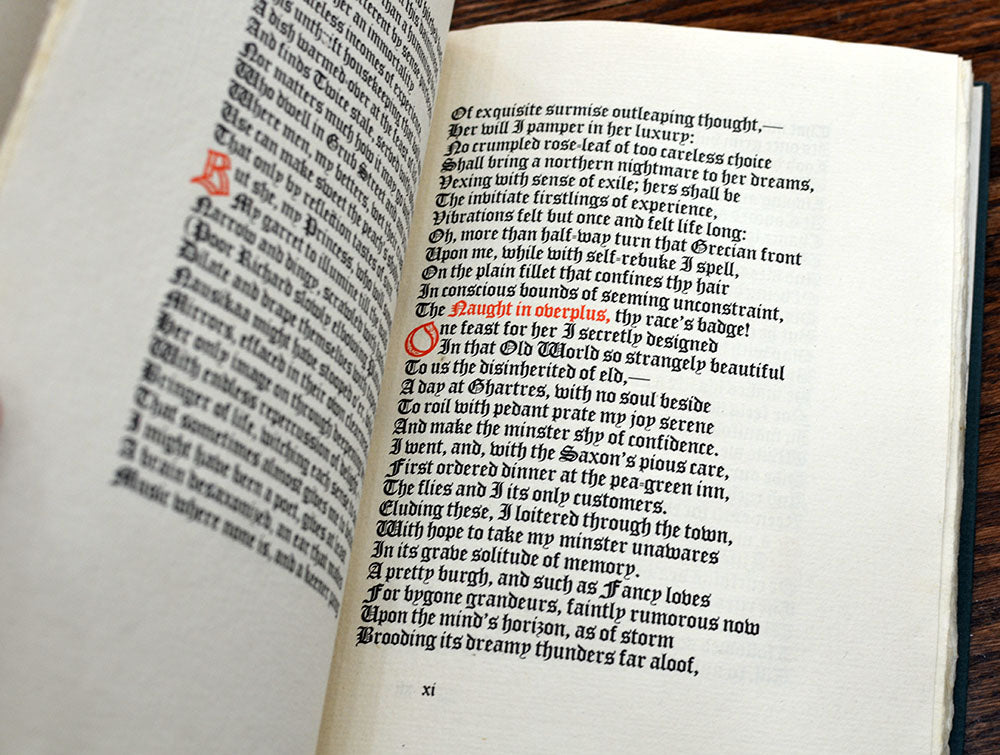 than a humm
ifferent by sense
her an immortality
reless incomes of experien
This unth
A dish warmed-over at the
And finds Twice stale, served
Nor matters much how it may go
Who dwell in Grub Street and
Where men, my betters, wet their
Use can make sweet the peach's
That only by reflection tastes of
But she, my Princess, who will
My garret to illumine till the
Narrow and dingy, scrawled with
(Poor Richard slowly elbowing
Dilate and drape themselves with
Nausikaa might have stooped
Mirrors, effaced in their own
Her only image on through deepe
With endless repercussion of
Bringer of life, witching each sense
That sometimes almost gives me
I might have been a poet, gives at least
A brain desaxonized, an ear that makes
Music where none is, and a keener
Of exquisite surmise outleaping thought,—
Her will I pamper in her luxury:
No crumpled rose-leaf of too careless choice
Shall bring a northern nightmare to her dreams,
Vexing with sense of exile; hers shall be
The invitiate firstlings of experience,
Vibrations felt but once and felt life long:
Oh, more than half-way turn that Grecian front
Upon me, while with self-rebuke I spell,
On the plain fillet that confines thy hair
In conscious bounds of seeming unconstraint,
The Naught in overplus, thy race's badge!
One feast for her I secretly designed
In that Old World so strangely beautiful
To us the disinherited of eld,—
A day at Chartres, with no soul beside
To roil with pedant prate my joy serene
And make the minster shy of confidence.
I went, and, with the Saxon's pious care,
First ordered dinner at the pea-green inn,
The flies and I its only customers.
Eluding these, I loitered through the town,
With hope to take my minster unawares
In its grave solitude of memory.
A pretty burgh, and such as Fancy loves
For bygone grandeurs, faintly rumorous now
Upon the mind's horizon, as of storm
Brooding its dreamy thunders far aloof,
xi